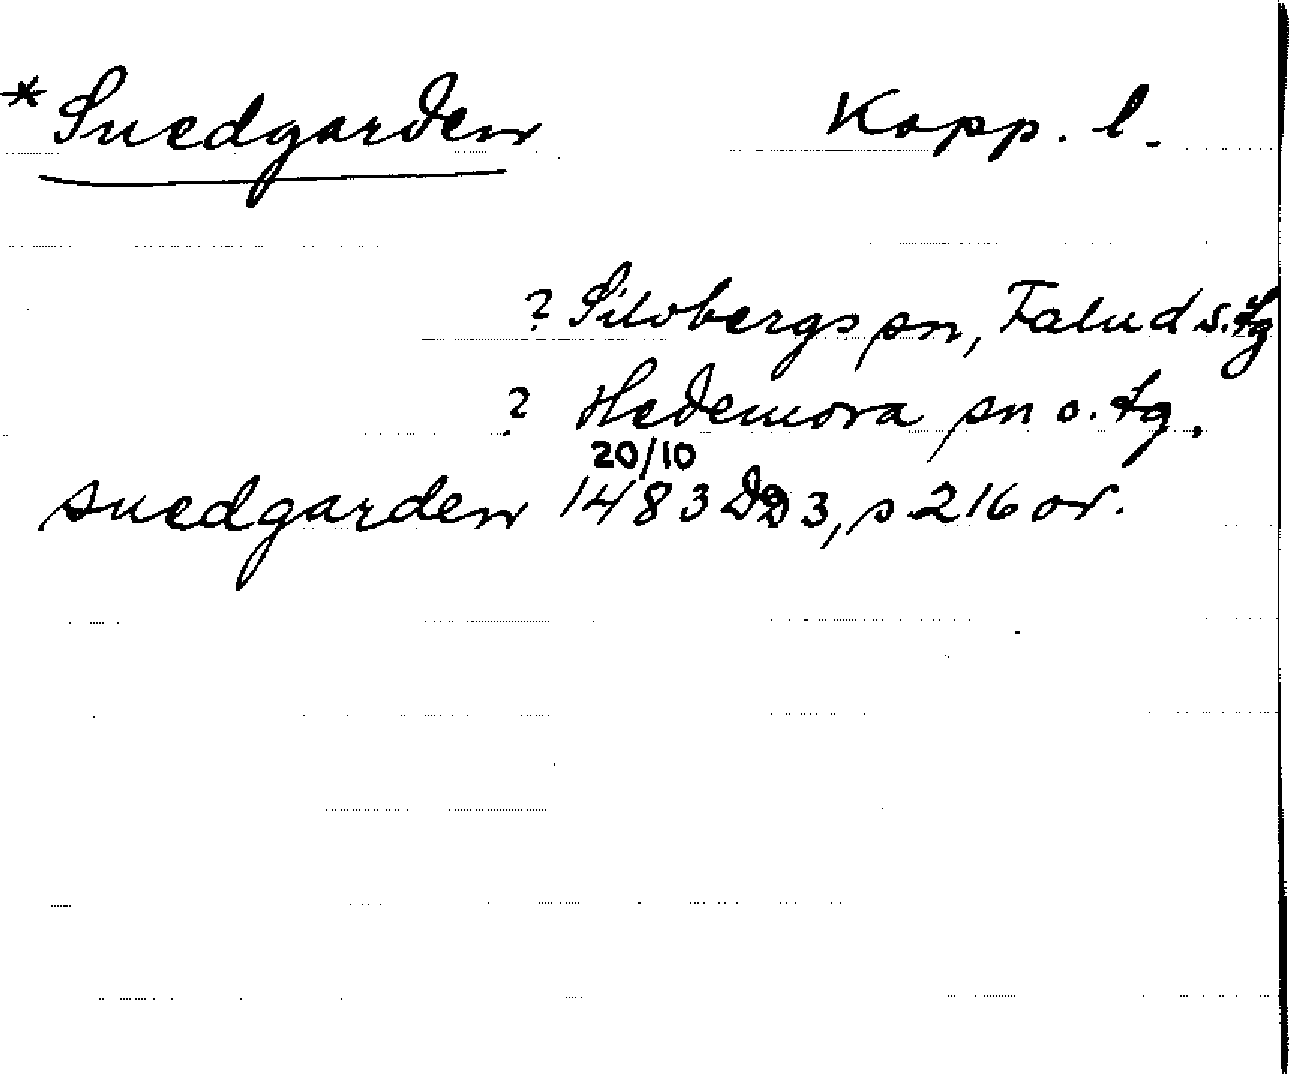 *Snedgarden Kopp. l.
? Silvbergs sn, Falu d s. tg
? Hedemora sn o. tg.
20/10
snedgarden 1483 DD 3, s 216 or.